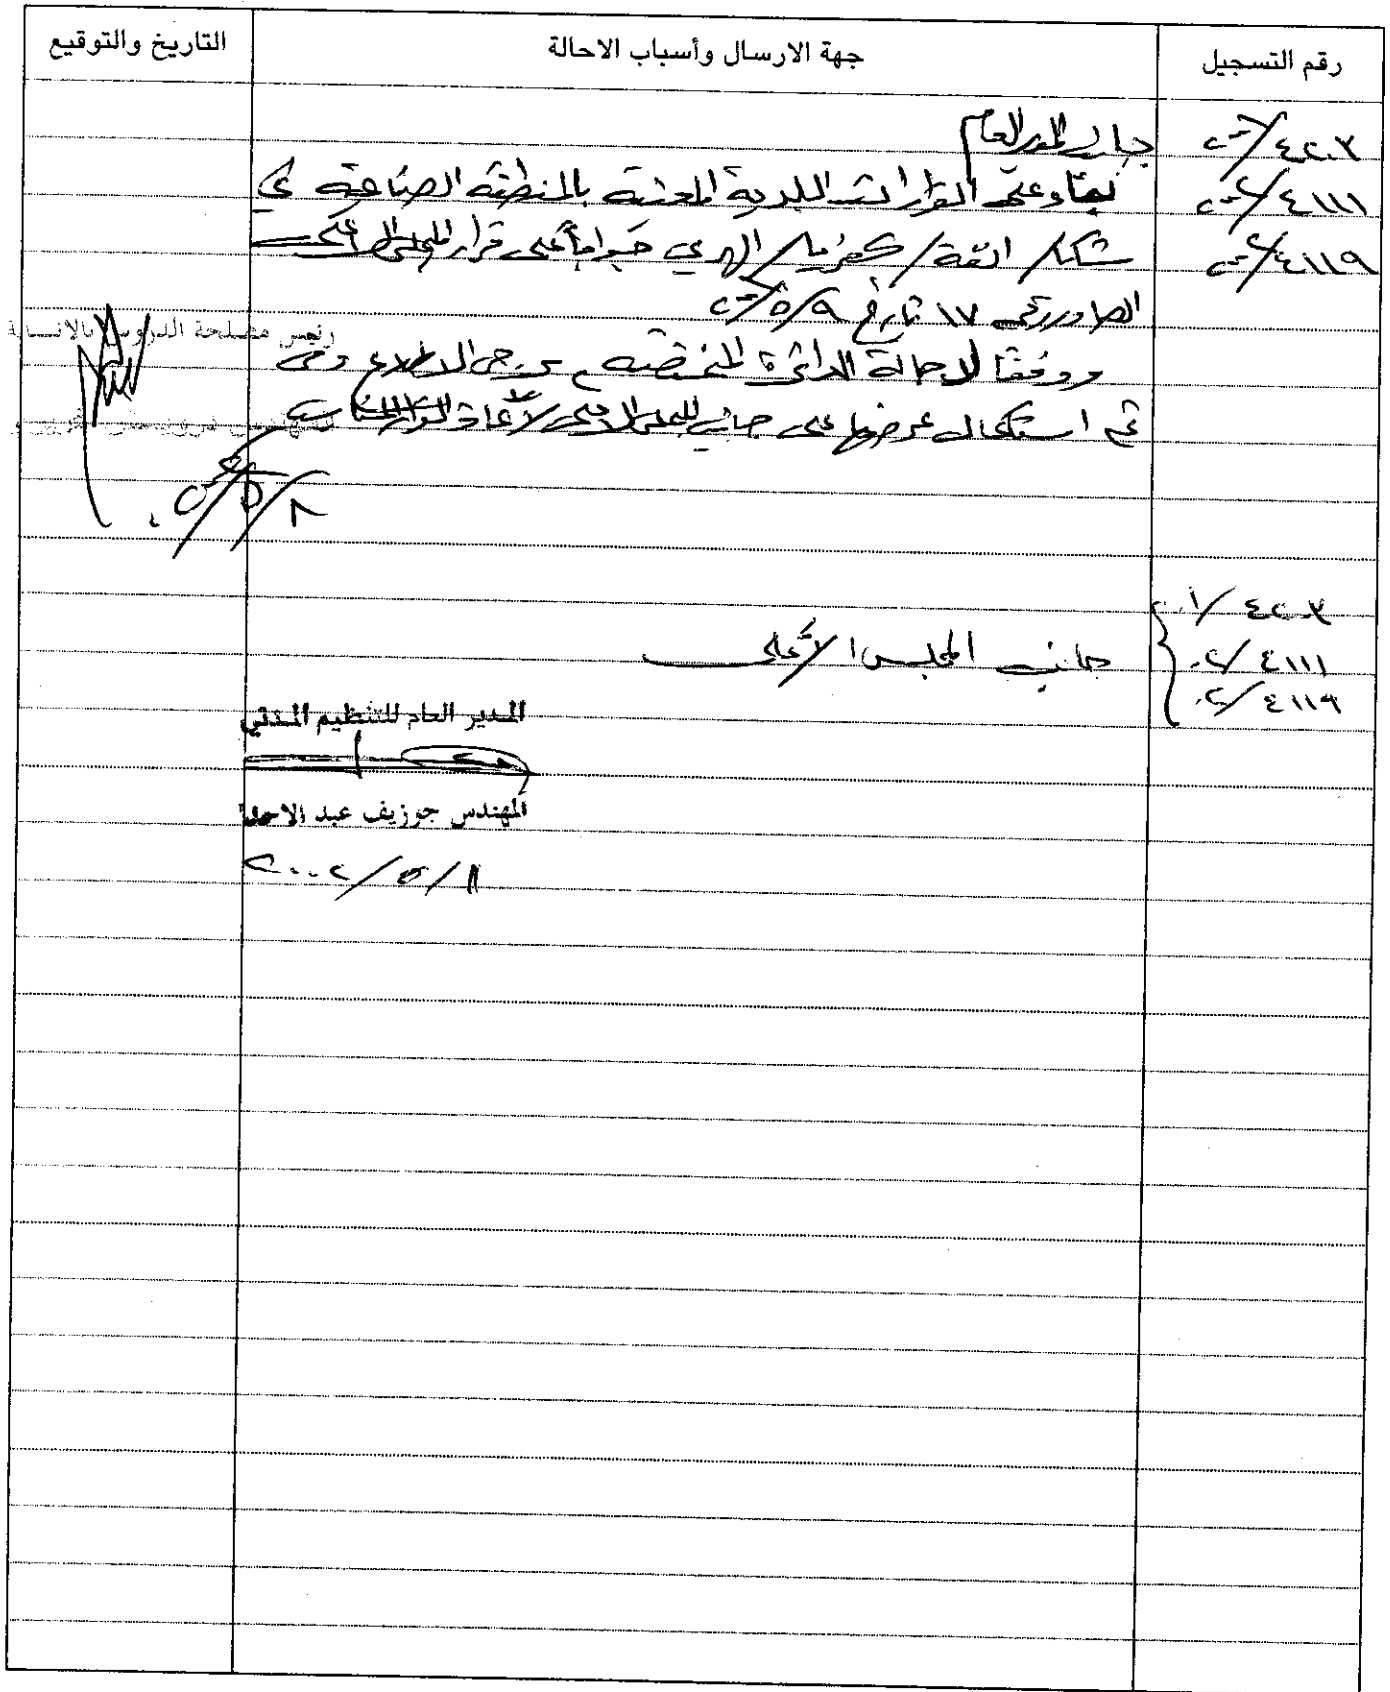 رقم التسجيل
جهة الارسال وأسباب الاحالة
التاريخ والتوقيع
٤٢٠٣/
جانب المدير العام
٤١١١/
بناء على القرارات البلدية المعنية بالمنطقة الصناعية في
٤١١٩/
شكا / انفة / كفريا / الهري جوابا على قرار المجلس الاعلى
الصادر رقم ١٧ تاريخ ٩/٥/
ووفقا لاحالة الدائرة المختصة يرجى الاطلاع ومن
ثم استكمال عرضها على جانب المجلس الاعلى لاتخاذ القرار المناسب
رئيس مصلحة الدروس بالانابة
٨/٥/
٤٢٠٣/
٤١١١/٠٢
جانب المجلس الأعلى
٤١١٩/٠٢
المدير العام للتنظيم المدني
المهندس جوزيف عبد الاحد
/٥/٢٠٠٢